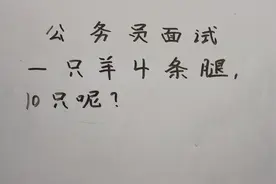 公务员面试
一只羊4条腿，
10只呢？